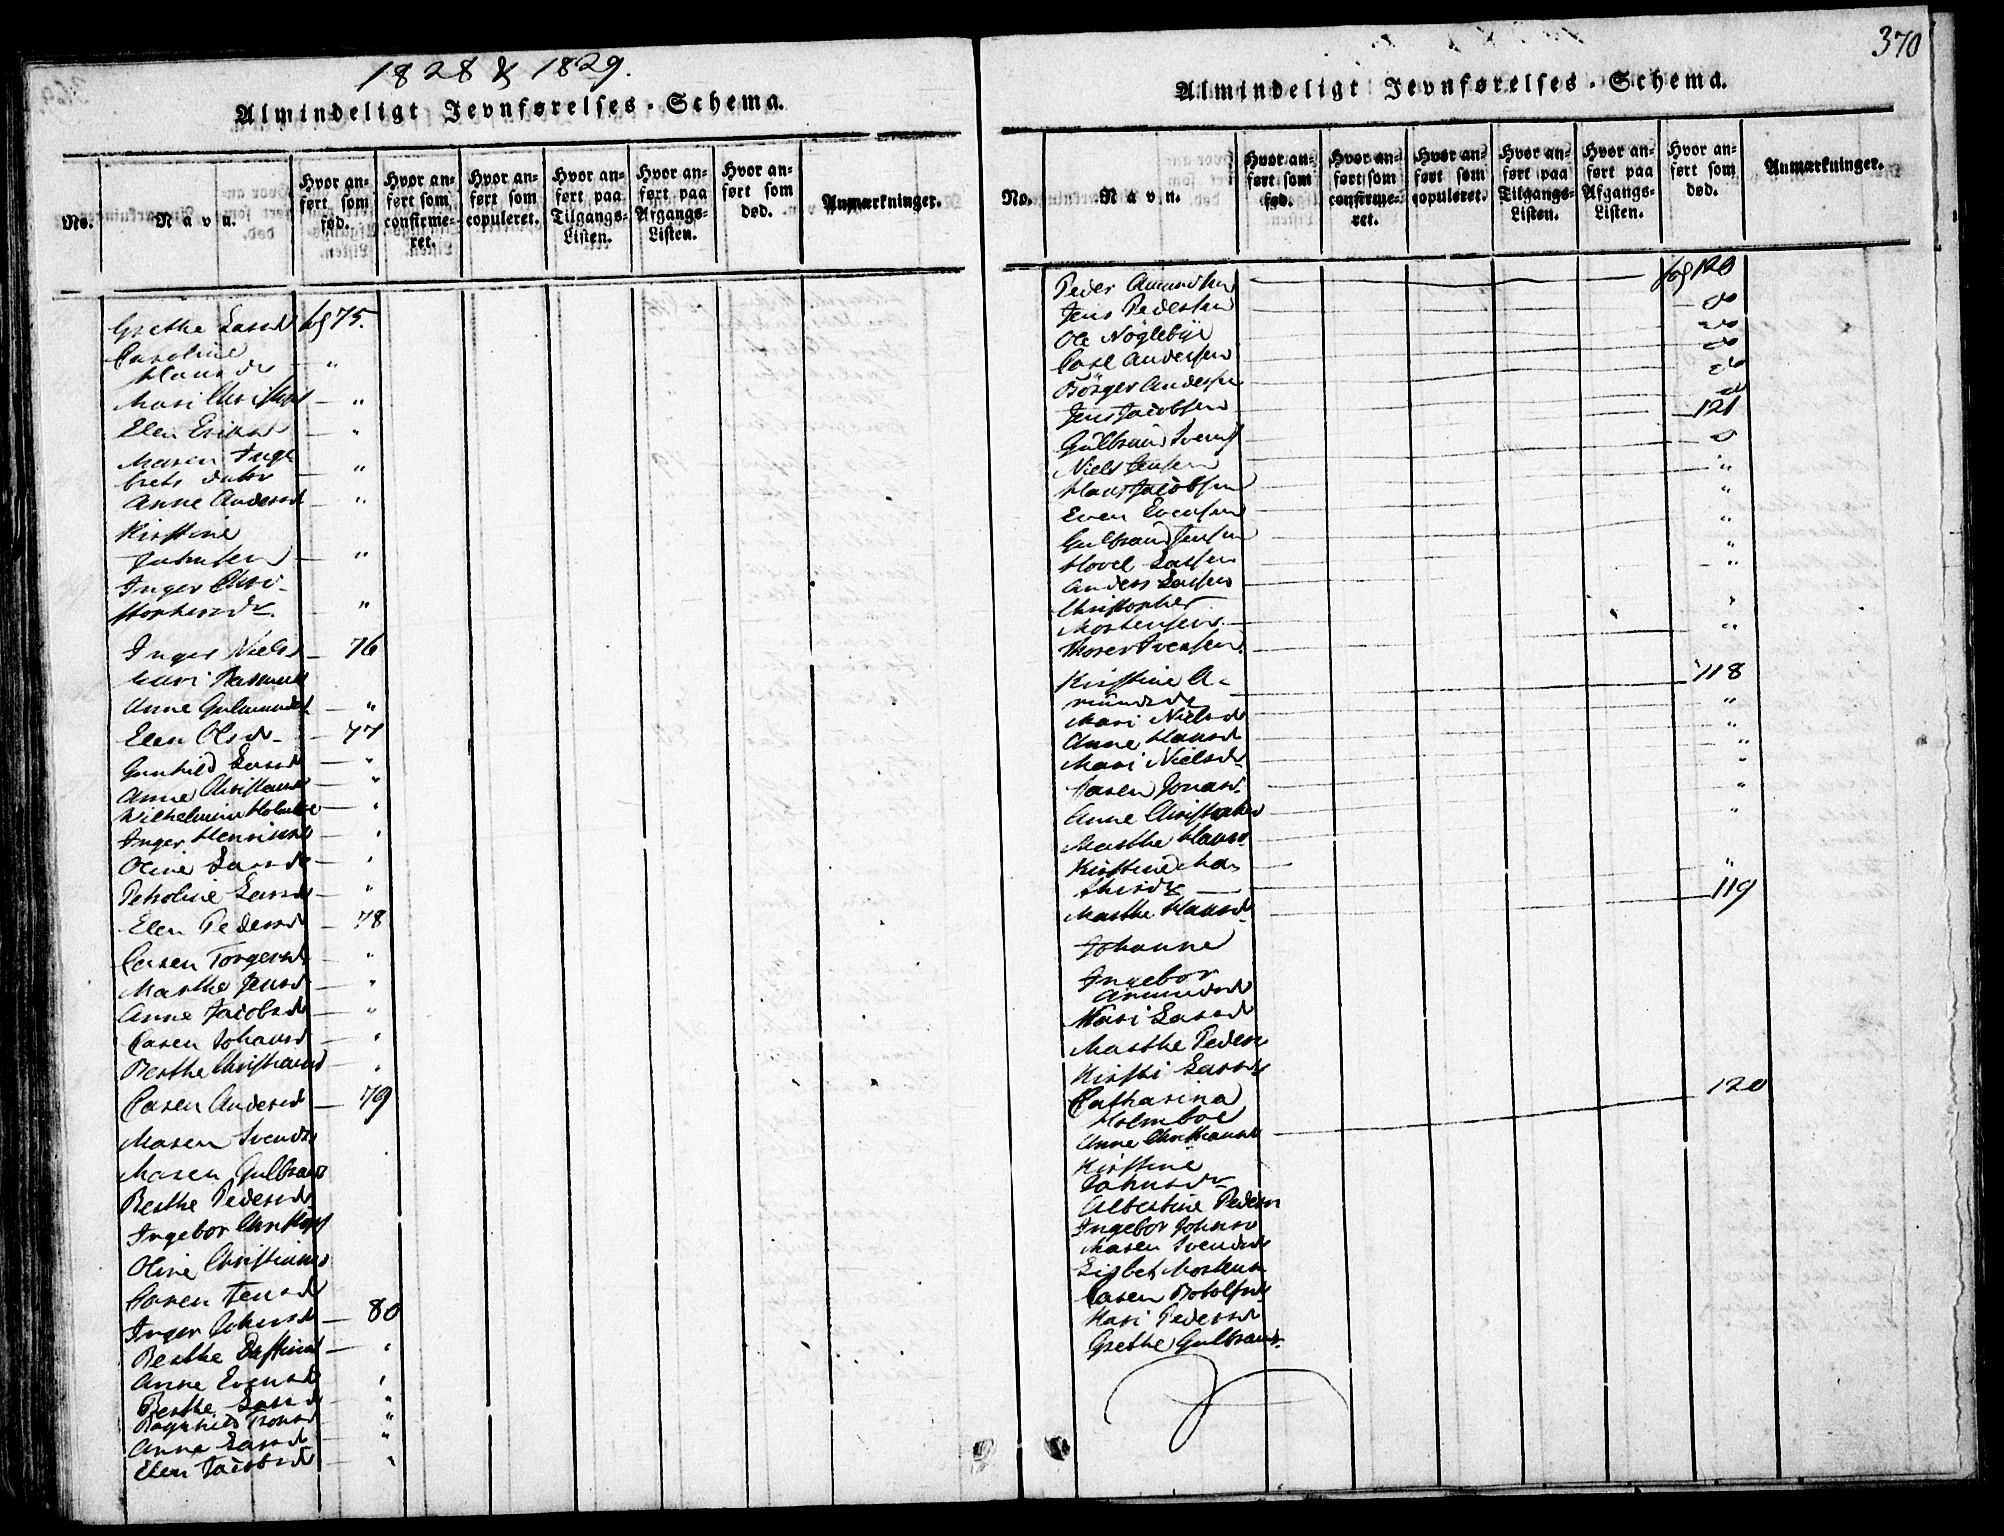 1828 & 1829.
Almindeligt Jevnførelses-Schema.
No.
Navn.
Hvor anført som fød.
Hvor anført som confirmeret.
Hvor anført som copuleret.
Hvor anført paa Tilgangs-Listen.
Hvor anført paa Afgangs-Listen.
Hvor anført som død.
Anmærkninger.
Grethe Larsd fg 75.
Caroline
Hansdr — "
Mari Christophs — "
Elen Eriksd — "
Maren Inge
brets dater — "
Anne Andersd — "
Kirstine
Johnsen — "
Inger Chri-
stophersdr. — "
Inger Nielsd — 76
Mari Rasmusd
Anne Gulmundsd — "
Elen Olsdr — 77
Gunhild Larsd — "
Anne Christiansd — "
Wilhelmine Holmboe — "
Inger Henriksd — "
Oline Larsdr — "
Petroline Larsd — "
Elen Pedersd — 78
Caren Torgersd — "
Marthe Jensd — "
Anne Jacobsd — "
Caren Johansd — "
Berthe Christiansd — "
Caren Andersd — 79
Maren Svendsd
Maren Gulbrands
Berthe Pedersd
Ingebor Christophs
Oline Christiansd
Caren Jensd
Inger Johnsd — 80
Berthe — "
Anne Evensd — "
Berthe Larsd — "
Ragnhild Tronsd — "
Anne Larsd — "
Elen Jacobsd — "
370
Almindeligt Jevnførelses-Schema.
No.
Navn.
Hvor anført som fød.
Hvor anført som confirmeret.
Hvor anført som copuleret.
Hvor anført paa Tilgangs-Listen.
Hvor anført paa Afgangs-Listen.
Hvor anført som død.
Anmærkninger.
Peder Amundsen — fog 120
Jens Pedersen — do
Ole Nöglebye — do
Carl Andersen — do
Börger Andersen — do
Jens Jacobsen — do
Gulbrand Svends — 121
Niels Jensen — do
Hans Jacobsen — "
Even Evensen — "
Gulbrand Jensen — "
Hovel Larsen — "
Anders Larsen — "
Christopher
Mortensen — "
Thorer Svensen — "
Kirstine A-
mundsdr — 118
Mari Nielsd — "
Anne Hansd — "
Mari Nielsdr — "
Caren Jonasd. — "
Anne Christophersd — "
Marthe Hansd
Kirstine Ma-
thisdr — "
Marthe Hansd — 119
Johanne
Ingebor
Amundsd
Kari Larsd
Marthe Peders
Kirsti Larsdr
Catharina
Holmboe
Anne Christiansd — 120
Kirstine
Johnsdr
Albertine Peders
Ingebor Johnsd
Maren Svendsd
Lisbet Mortens
Caren Rolofsd
Kari Pedersd
Grethe Gulbrands.